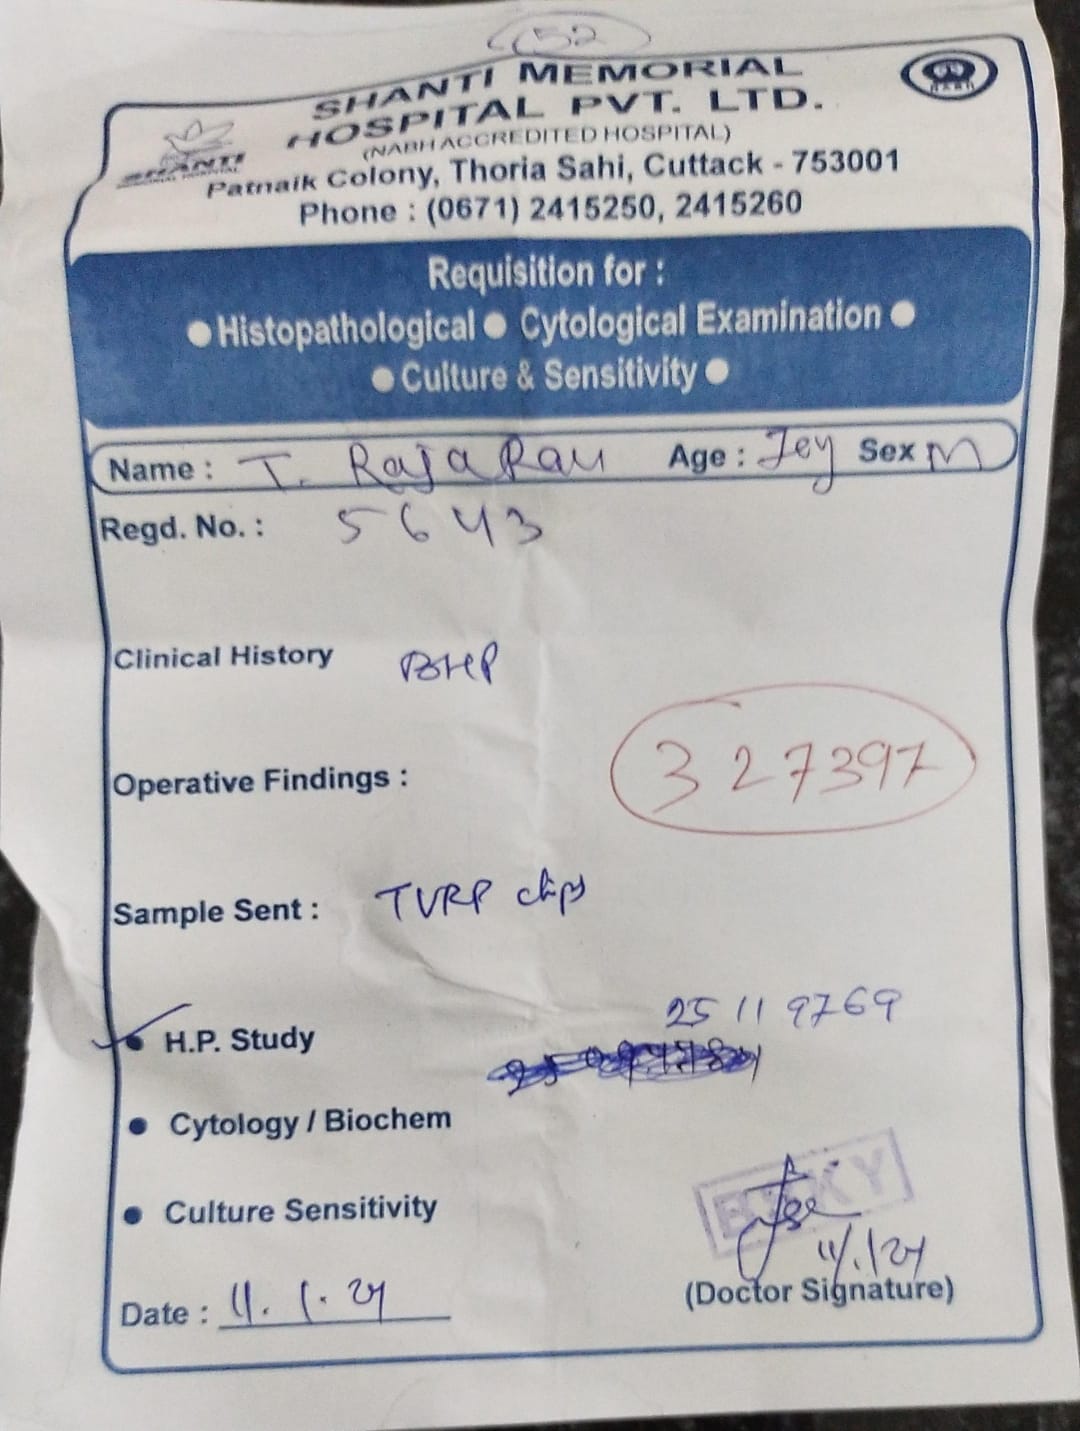 52
SHANTI MEMORIAL
HOSPITAL PVT. LTD.
(NABH ACCREDITED HOSPITAL)
SHANTI
Patnaik Colony, Thoria Sahi, Cuttack - 753001
Phone : (0671) 2415250, 2415260
Requisition for :
● Histopathological ● Cytological Examination ●
● Culture & Sensitivity ●
Name : T. Raja Rau Age : Sex M
Regd. No. : 5643
Clinical History BHP
327397
Operative Findings :
Sample Sent : TURP chips
25119769
● H.P. Study
● Cytology / Biochem
● Culture Sensitivity
11/1/24
Date : 11.1.24 (Doctor Signature)